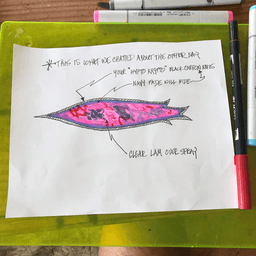 * THIS IS WHAT WE CHATTED ABOUT THE OTHER DAY
YOUR "HYPTO KRYPTO" BLACK CARBON RAILS
NAVY FADE WILL RIDE
CLEAR LAM OVER SPRAY